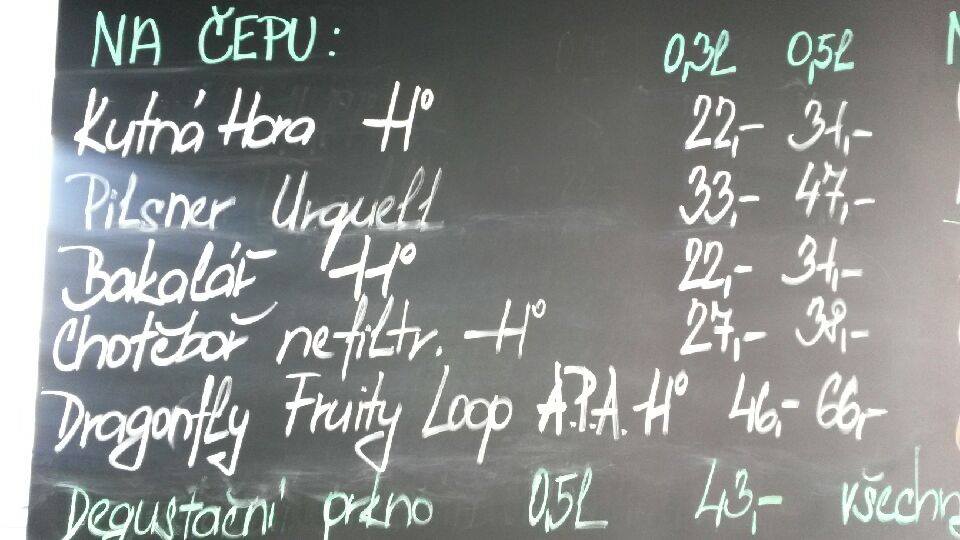 NA ČEPU: 0,3l 0,5l
Kutná Hora 11° 22,- 31,-
Pilsner Urquell 33,- 47,-
Bakalář 11° 22,- 31,-
Chotěboř nefiltr. 11° 27,- 38,-
Dragonfly Fruity Loop A.P.A. 11° 46,- 66,-
Degustační prkno 0,5l 43,-